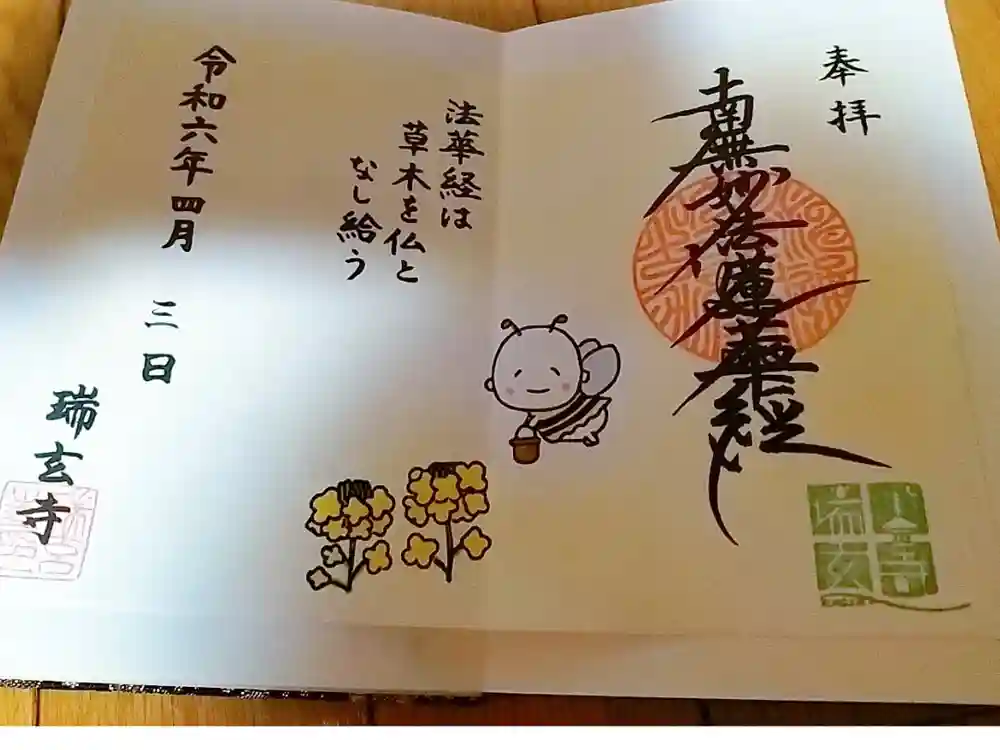 奉拝
南無妙法蓮華経
法華経は
草木を仏と
なし給う
令和六年四月三日
瑞玄寺